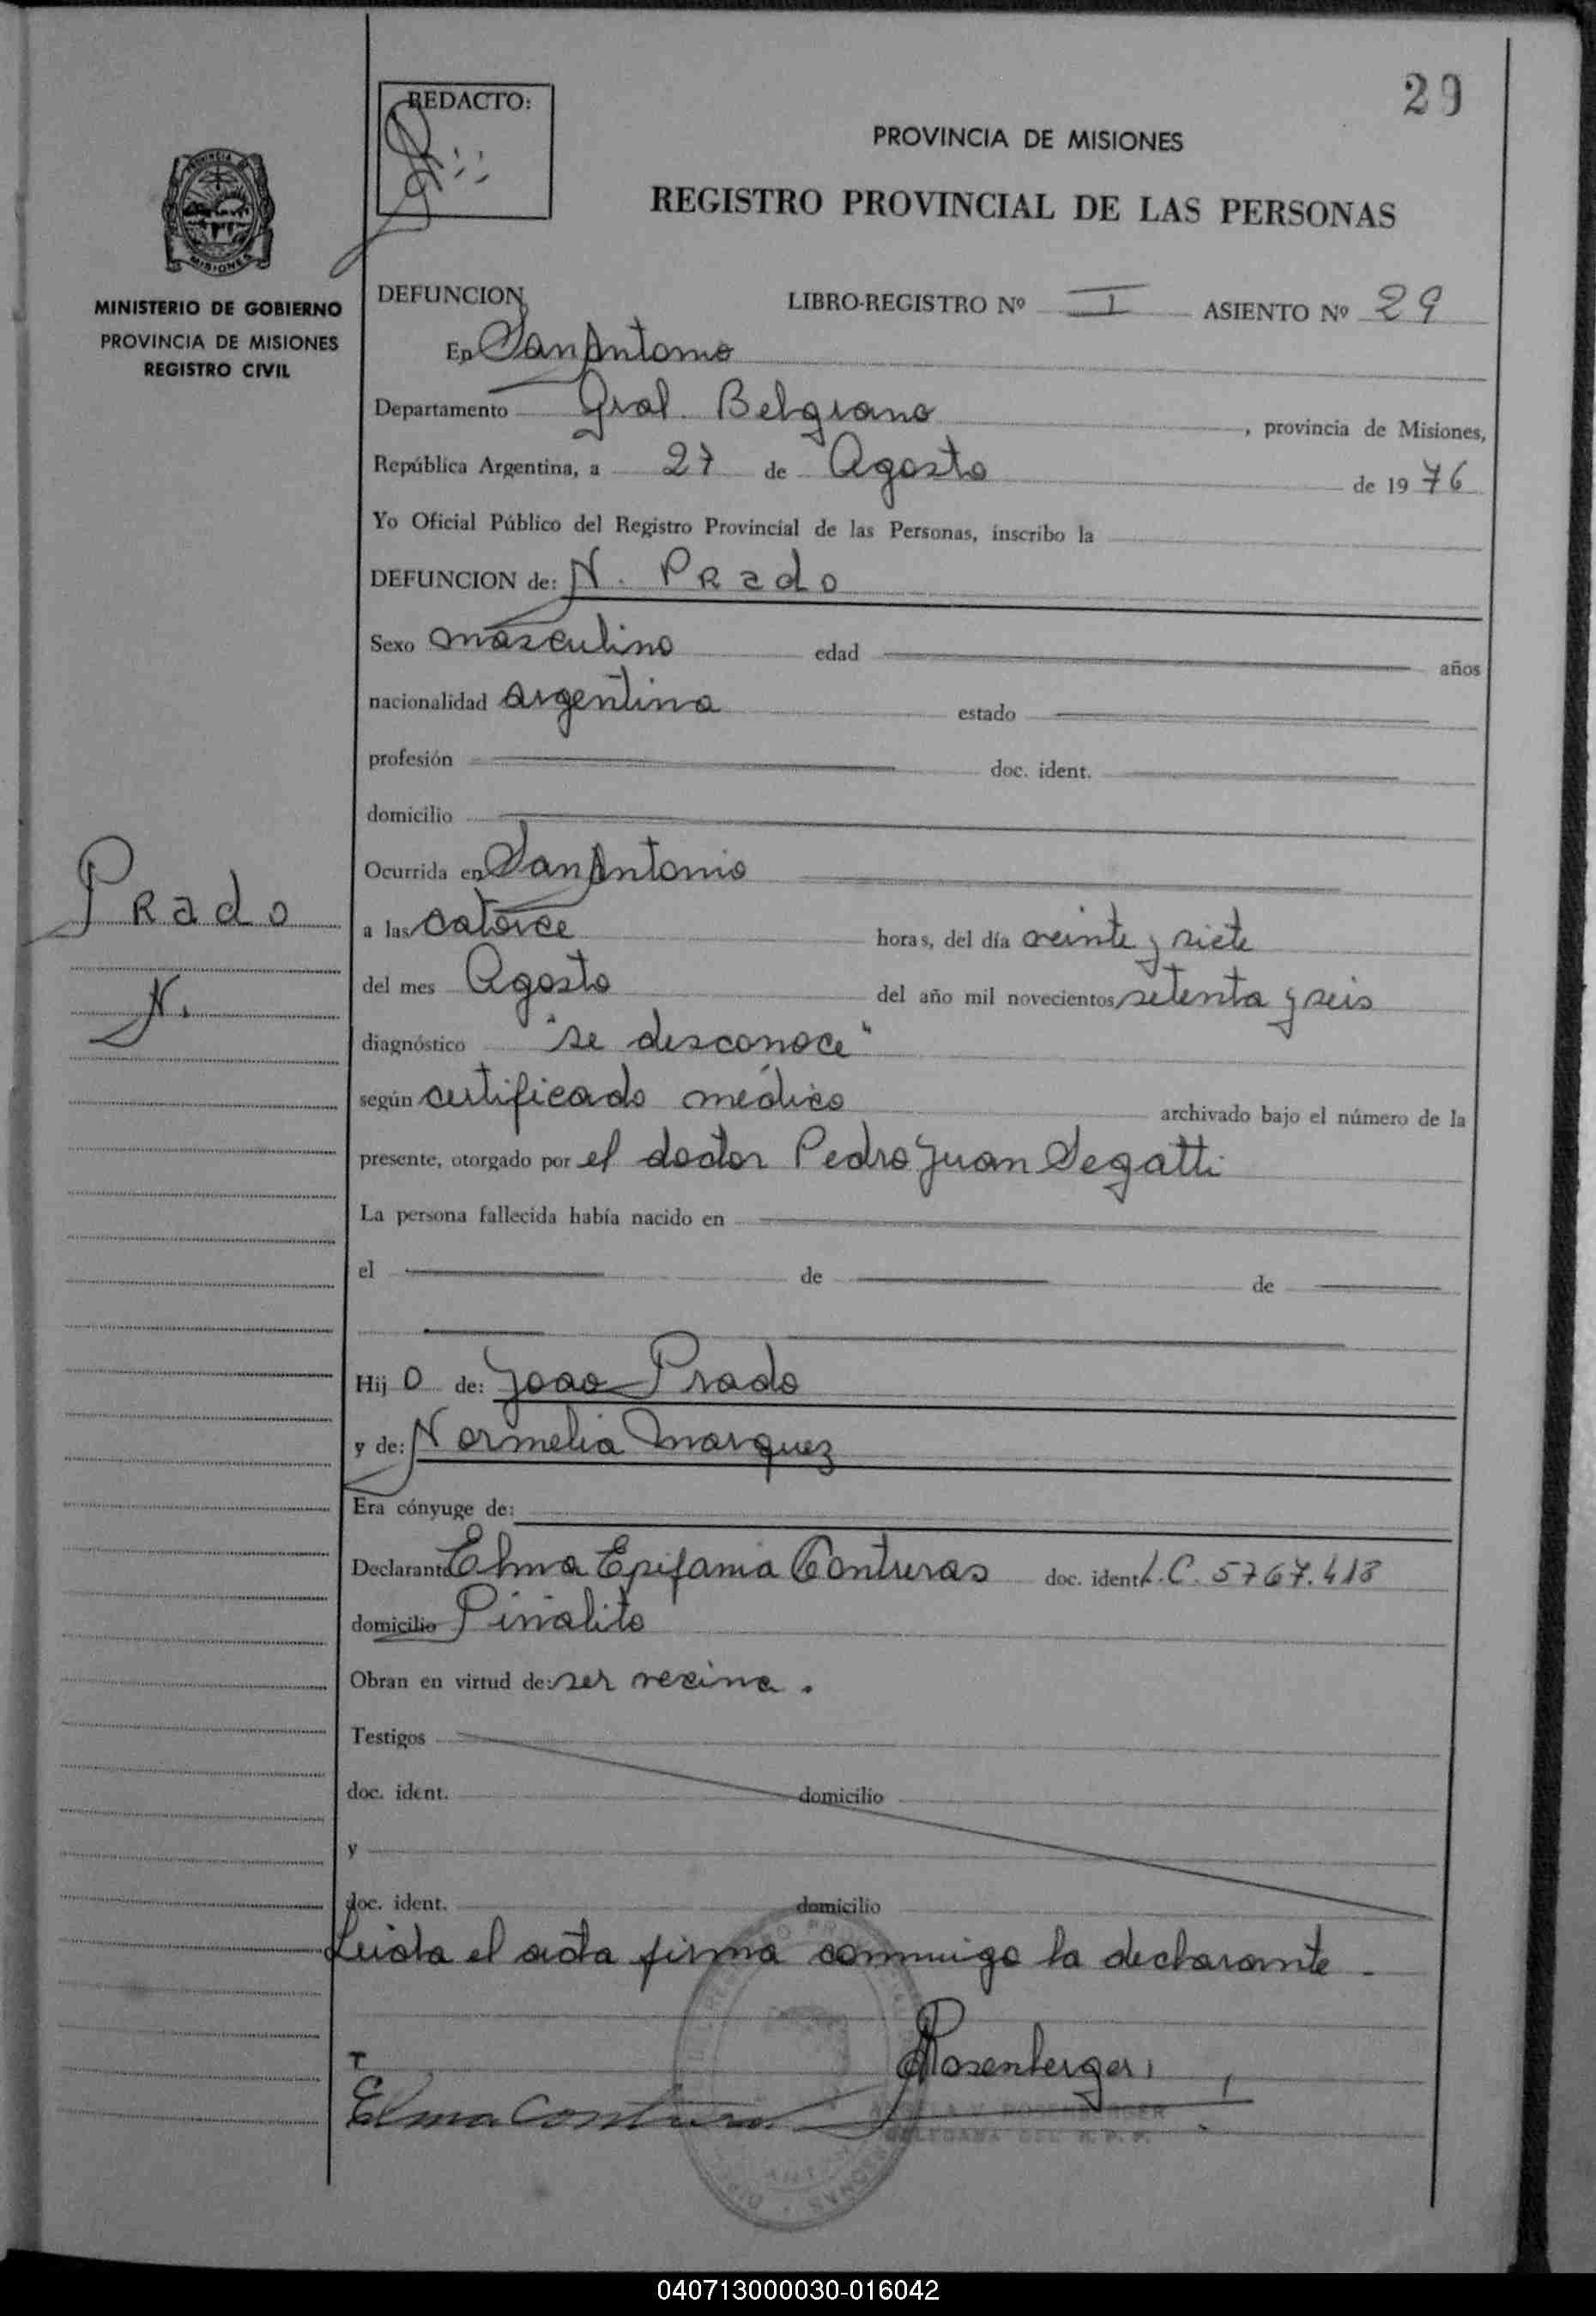 29
REDACTO:
PROVINCIA DE MISIONES
REGISTRO PROVINCIAL DE LAS PERSONAS
MISIONES
MINISTERIO DE GOBIERNO
PROVINCIA DE MISIONES
REGISTRO CIVIL
DEFUNCION LIBRO-REGISTRO Nº I ASIENTO Nº 29
En San Antonio
Departamento Gral. Belgrano, provincia de Misiones,
República Argentina, a 27 de Agosto de 1976
Yo Oficial Público del Registro Provincial de las Personas, inscribo la
DEFUNCION de: N. Prado
Sexo masculino edad años
nacionalidad argentina estado
profesión doc. ident.
domicilio
Ocurrida en San Antonio
Prado
N.
a las catorce horas, del día veinte y siete
del mes Agosto del año mil novecientos setenta y seis
diagnóstico "se desconoce"
según certificado médico archivado bajo el número de la
presente, otorgado por el doctor Pedro Juan Segatti
La persona fallecida había nacido en
el de de
Hijo de: Joao Prado
y de: Normelia Marquez
Era cónyuge de:
Declarante Elma Epifania Contreras doc. ident. L.C. 5767.413
domicilio Piñalito
Obran en virtud de: ser vecina.
Testigos
doc. ident. domicilio
y
doc. ident. domicilio
Leida el acta firma conmigo la declarante.
Rosenberger
Elma Contreras
ROSENBERGER
DELEGADA DEL R. P. P.
040713000030-016042